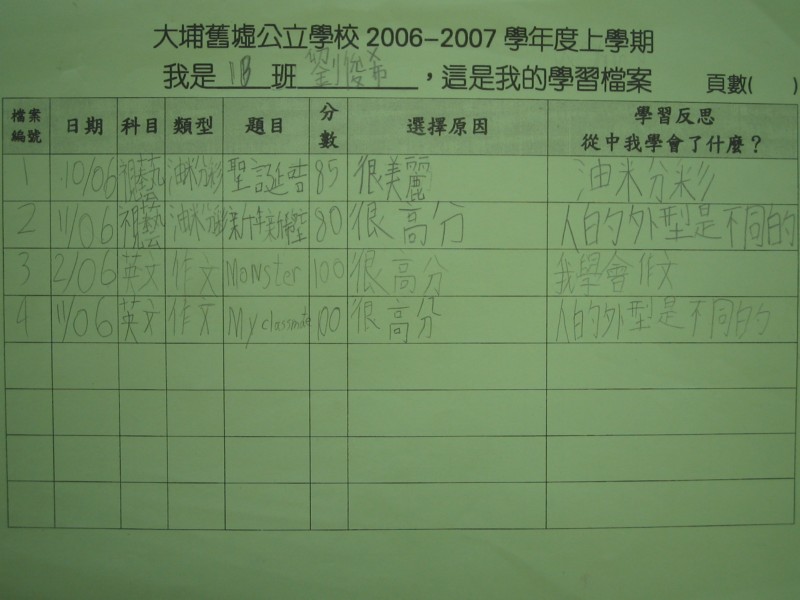 大埔舊墟公立學校 2006-2007 學年度上學期
我是 1B 班 劉俊希 ，這是我的學習檔案 頁數( )
檔案編號 日期 科目 類型 題目 分數 選擇原因 學習反思 從中我學會了什麼？
1 10/06 視藝 油粉彩 聖誕 85 很美麗 油米分彩
2 11/06 視藝 油粉彩 新年新 80 很高分 人的外型是不同的
3 2/06 英文 作文 Monster 100 很高分 我學會作文
4 11/06 英文 作文 My classmate 100 很高分 人的外型是不同的